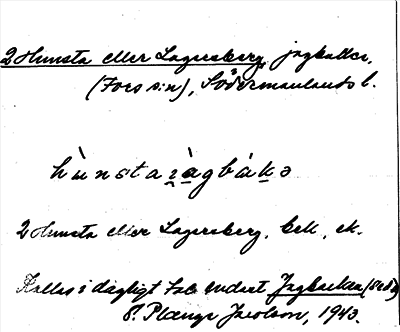 2 Hunsta eller Lagersberg, jagbacke,
(Fors s:n), Södermanlands l.
hu̇nstaza̱gbák̠ə
2 Hunsta eller Lagersberg, bek, ek.
Kallas i dagligt tal endast Jagbacken
S. Plenge Jacobson, 1943.